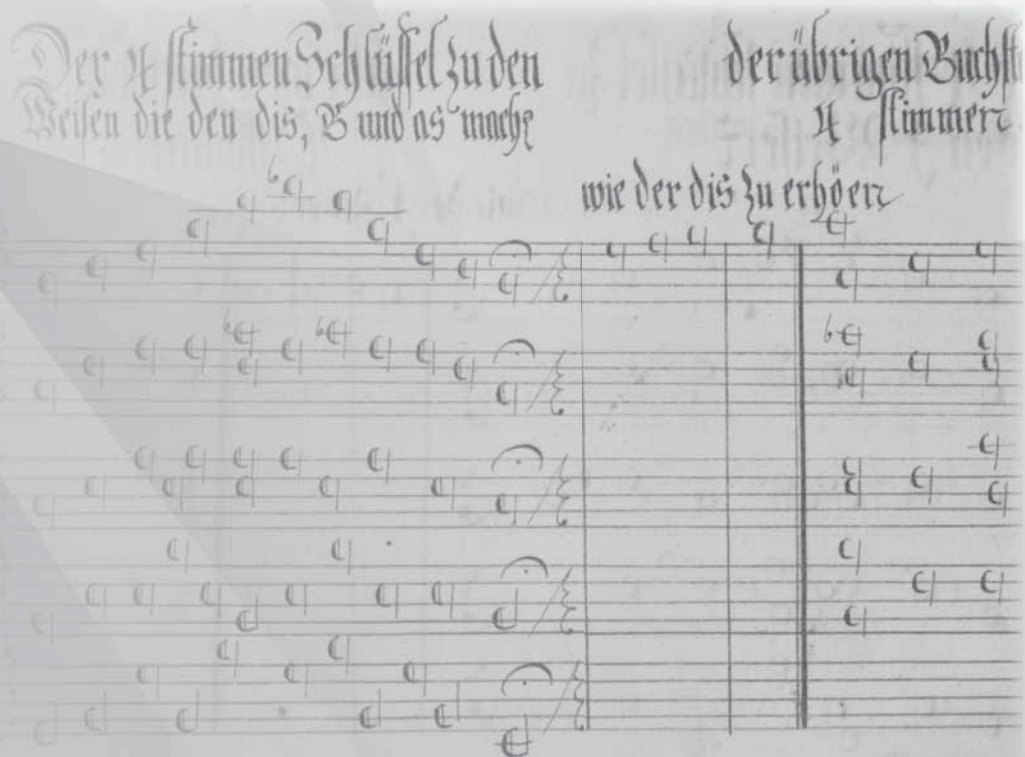 Der 4 stimmen Schlüssel zu den
Weisen die den dis, B und as mache
der übrigen Buchst
4 stimmen
wie der dis zu erhöen